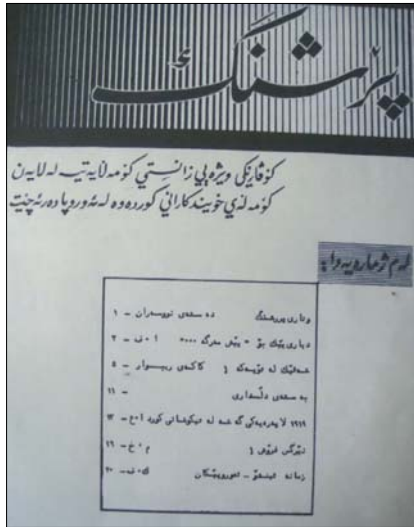 پرشنگ
گۆڤارێکی وێژەیی زانستی کۆمەڵایەتیە لەلایەن
کۆمەڵەی خوێندکارانی کوردەوە لە ئەوروپا دەرئەچێت
لەم ژمارەیەدا:
وتاری پرشنگ دەستەی نووسەران - ١
دیاری یێك بۆ - پێش مەرگە ٠٠٠٠ ا ٠ ف - ٢
لە کاکەی ریبوار - ٥
بەستەی دڵداری - ١١
١٩١٩ لاپەڕەیەکی گەشە لە تێکۆشانی کورد ا ٠ ع - ١٣
نێرگس فرۆش م ٠ خ - ١٦
زمانە - ئەوروپێکان ك ٠ ف - ٢٠